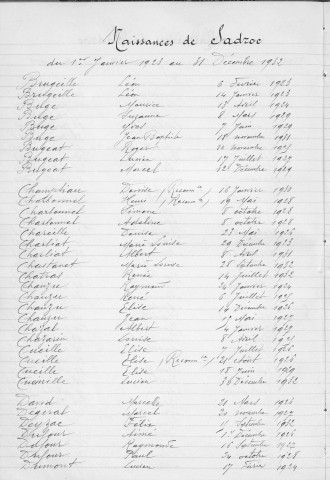 Naissances de Sadroc
du 1er Janvier 1923 au 31 Décembre 1932
Brugeille Léon 6 Février 1923
Brugeille Léon 14 Janvier 1923
Buge Maurice 13 Avril 1924
Buge Suzanne 8 Mars 1929
Buge Yvon Juin 1929
Buge Jean Baptiste 18 novembre 1931
Bugeat Roger 14 novembre 1927
Bugeat Lucie 17 Juillet 1929
Bugeat Marcel 22 Décembre 1929
Denise (Reconn 16 Janvier 1930
Charbonnel Henri (Reconn 19 Mai 1928
Charbonnel Simone 8 octobre 1928
Charbonnel 8 octobre 1928
Chareille Denise 23 Mai 1926
Charliat Marie Louise 29 Décembre 1923
Charliat Albert 8 Avril 1931
Chastanet Marie Louise 28 Septembre 1932
Chatras Renée 14 Juillet 1932
Chauze Raymond 24 Janvier 1924
Chauze René 6 Juillet 1925
Chauze Elise 16 Décembre 1926
Chauze Jean 17 Mai 1927
Chazal Albert 4 Janvier 1929
Chazarin Louise 8 Avril
Cueille Elise Juillet 1926
Cueille Elise (Reconn 21 Août 1926
Cueille Elise 18 Juin 1929
Lucien Décembre 1932
David Marcelle 21 Mars 1926
Degeral Marcel 20 novembre 1927
Deyzac Félix 17 Octobre 1932
Dufour Aimé 1er Décembre 1926
Dufour Raymonde 16 Septembre 1927
Dufour Paul 24 octobre 1928
Dumont Lucien 17 Février 1929